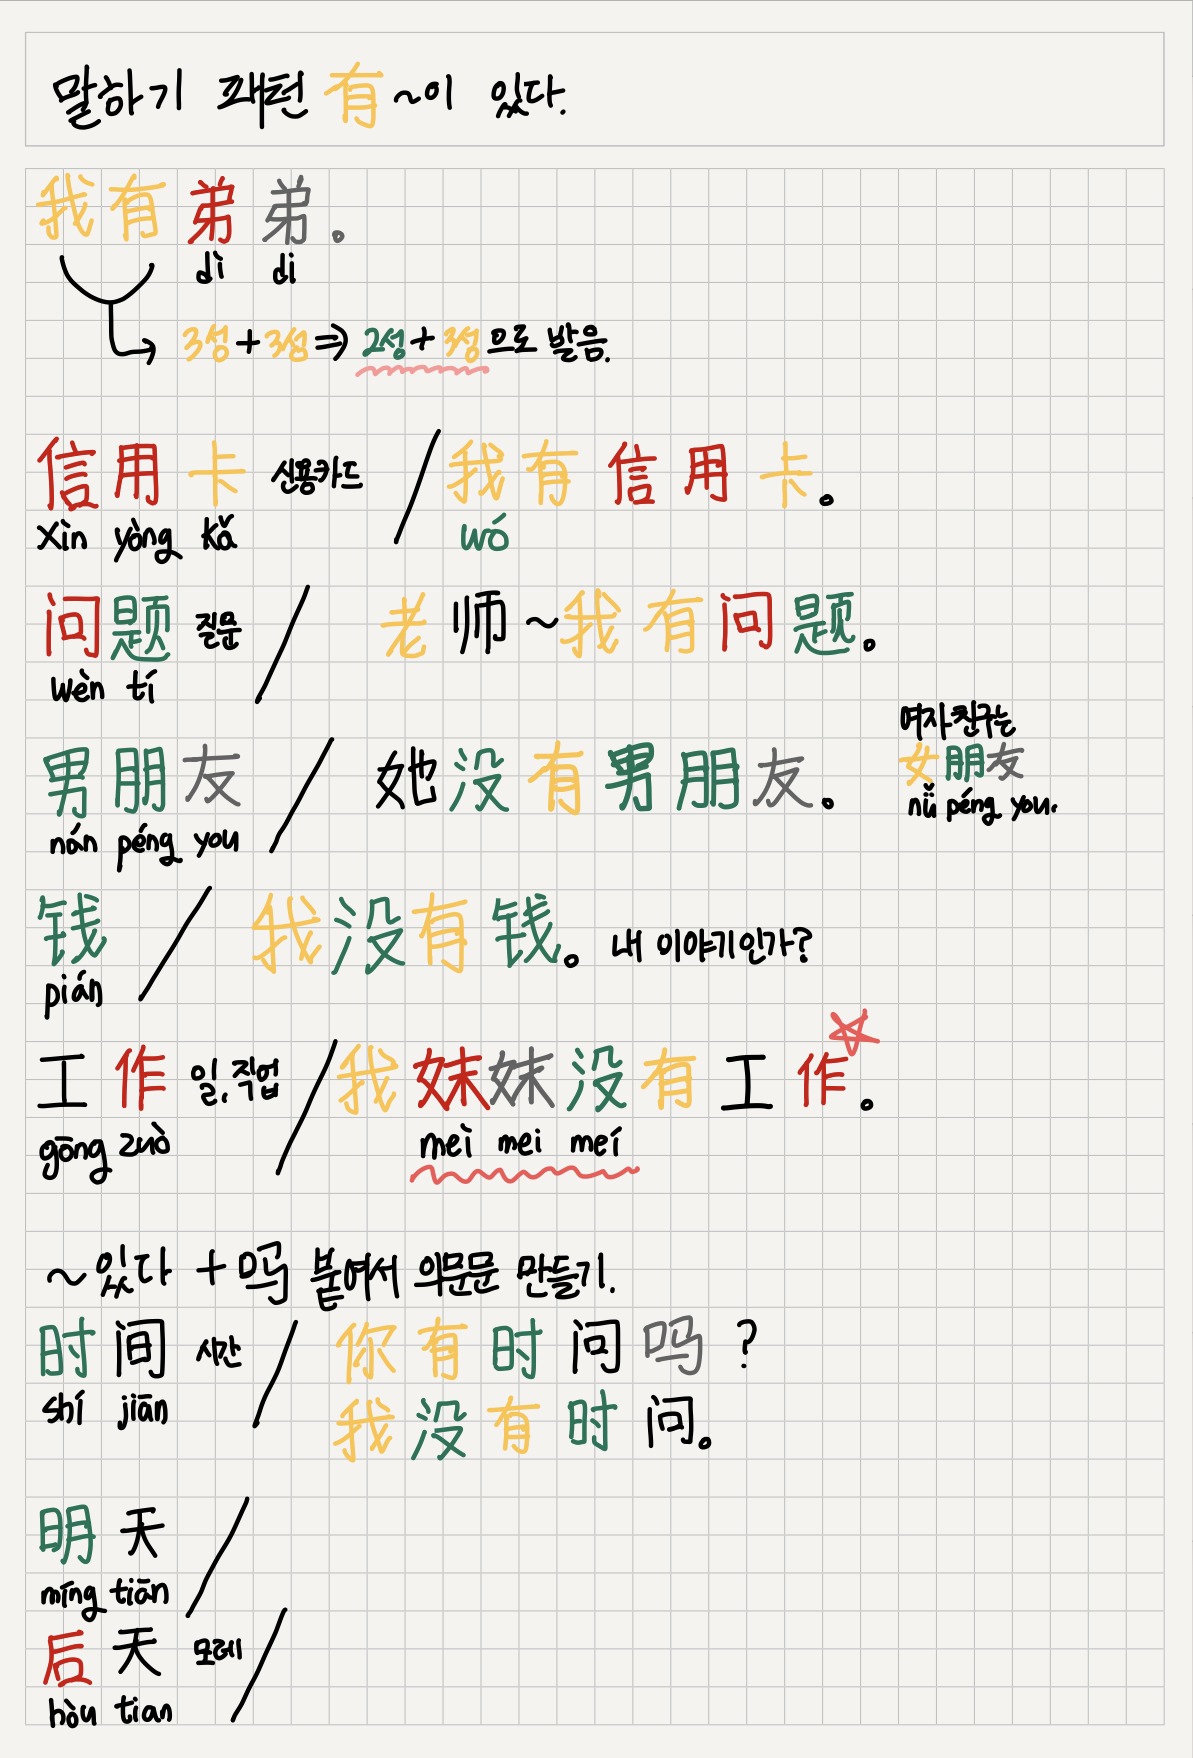 말하기 패턴 有 ~이 있다.
我有弟弟。
dì di
3성+3성⇒2성+3성으로 발음.
信用卡 신용카드 / 我有信用卡。
xìn yòng kǎ wó
问题 질문 / 老师~我有问题。
wèn tí
여자친구는
男朋友 / 她没有男朋友。 女朋友
nán péng you nǚ péng you.
钱 / 我没有钱。 내 이야기인가?
pián
工作 일, 직업 / 我妹妹没有工作。
gōng zuò mèi mei meí
~있다 + 吗 붙여서 의문문 만들기.
时间 시간 / 你有时问吗?
shí jiān
我没有时问。
明天 /
míng tiān
后天 모레 /
hòu tian